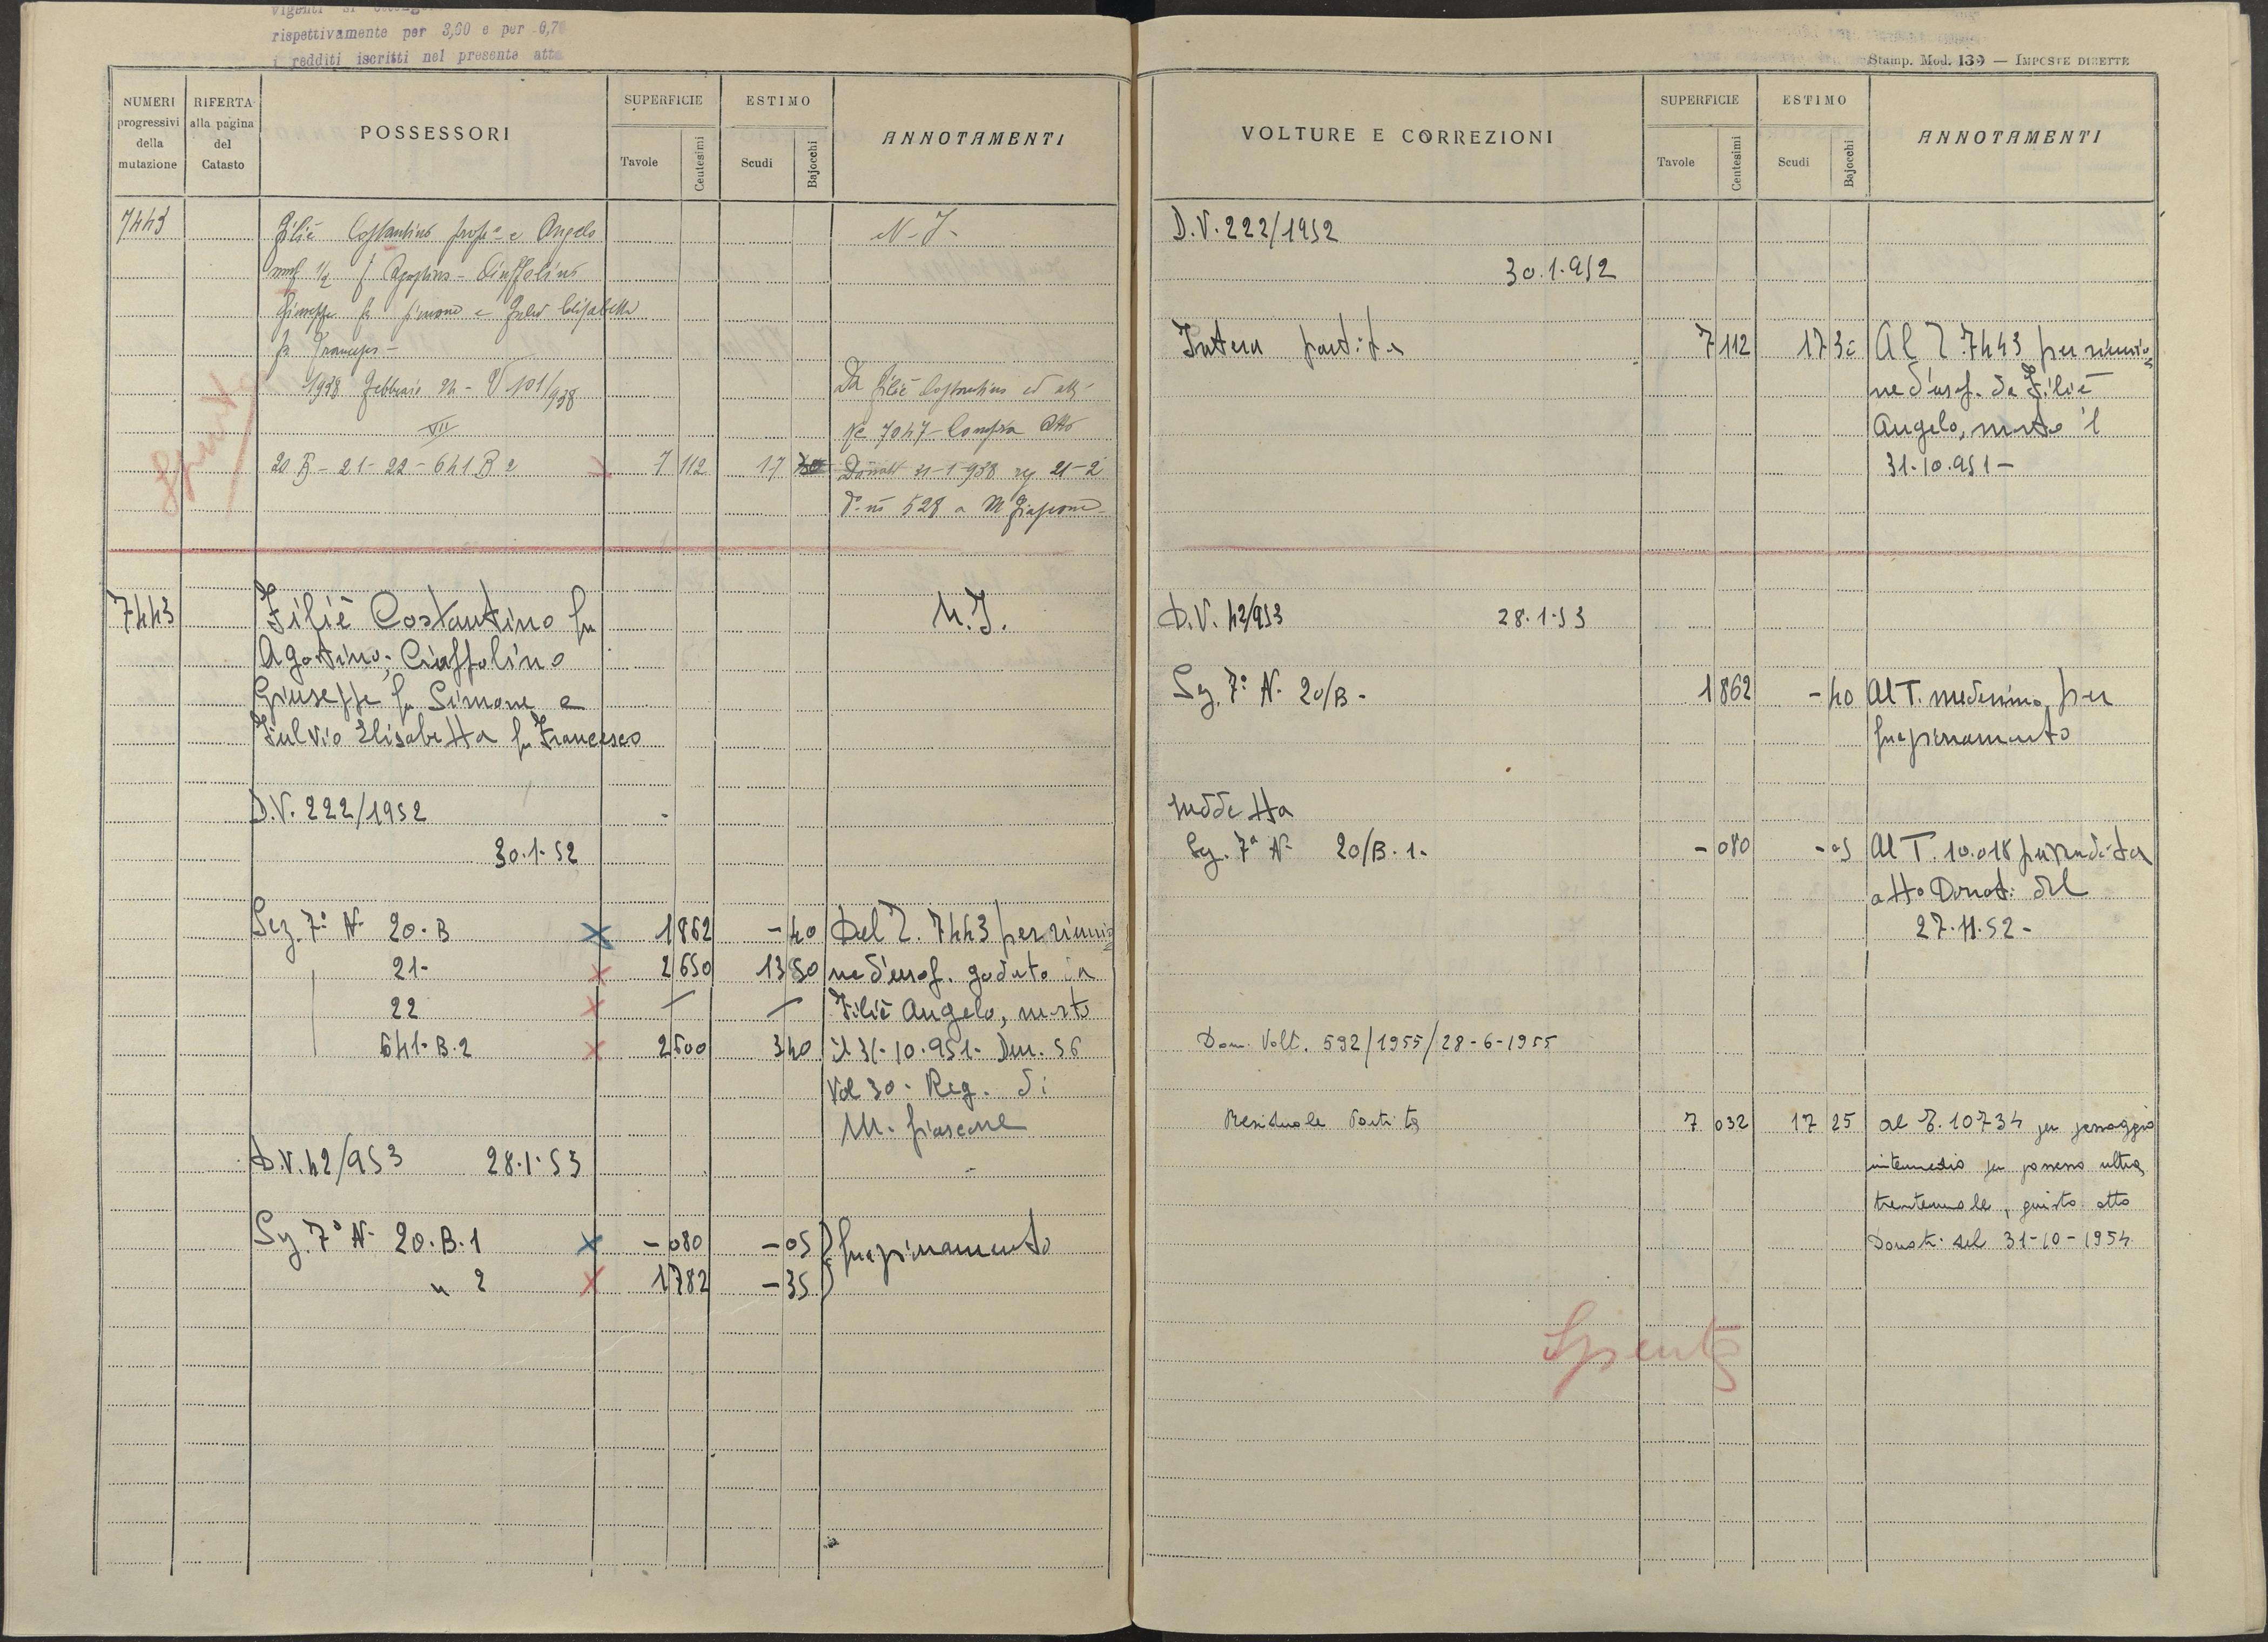 rispettivamente per 3,60 e per 0,70
i redditi iscritti nel presente atto
NUMERI progressivi della mutazione
RIFERTA alla pagina del Catasto
POSSESSORI
SUPERFICIE
Tavole
Centesimi
ESTIMO
Scudi
Bajocchi
ANNOTAMENTI
7443
Filiè Costantino e Angelo
N. I.
1/2 Agostino - Ciuffolino
Giuseppe fu Simone e Fulvio Elisabetta
fu Francesco -
1938 Febbraio 24 - V 101/938
VII
Da Filiè Costantino ed altri
7047 - Compra Atto
20 B - 21 - 22 - 641 B 2
7 112
17 30
Donati 31-1-938 reg 21-2
528 a M Fiascone
Spenta
7443
Filiè Costantino fu
N. I.
Agostino; Ciuffolino
Giuseppe fu Simone e
Fulvio Elisabetta fu Francesco
D.V. 222/1952
30.1.52
Sez. 7ª N. 20.B
1 862
- 40
Dal T. 7443 per riunio
21-
2 650
13 50
ne d'usof. goduto da
22
Filiè Angelo, morto
641.B.2
2 600
3 40
il 31.10.951. Den. 56
Vol 30. Reg. di
M. fiascone
D.V. 42/953 28.1.53
Sez. 7ª N. 20.B.1
- 080
- 05
frazionamento
" 2
1 782
- 35
Stamp. Mod. 139 — IMPOSTE DIRETTE
VOLTURE E CORREZIONI
SUPERFICIE
Tavole
Centesimi
ESTIMO
Scudi
Bajocchi
ANNOTAMENTI
D.V. 222/1952
30.1.952
Intera partita
7 112
17 30
Al T. 7443 per riunio
ne d'usof. da Filiè
Angelo, morto il
31.10.951 -
D.V. 42/953 28.1.53
Sez. 7ª N. 20/B -
1 862
- 40
Al T. medesimo per
frazionamento
suddetta
Sez. 7ª N. 20/B.1.
- 080
- 05
Al T. 10.018 per vendita
atto Donati del
27.11.52 -
Dom. Volt. 592/1955/28-6-1955
Residuale Partita
7 032
17 25
al T. 10734 per passaggio
intermedio per possesso ultra
trentennale, giusto atto
Donati del 31-10-1954
Spenta